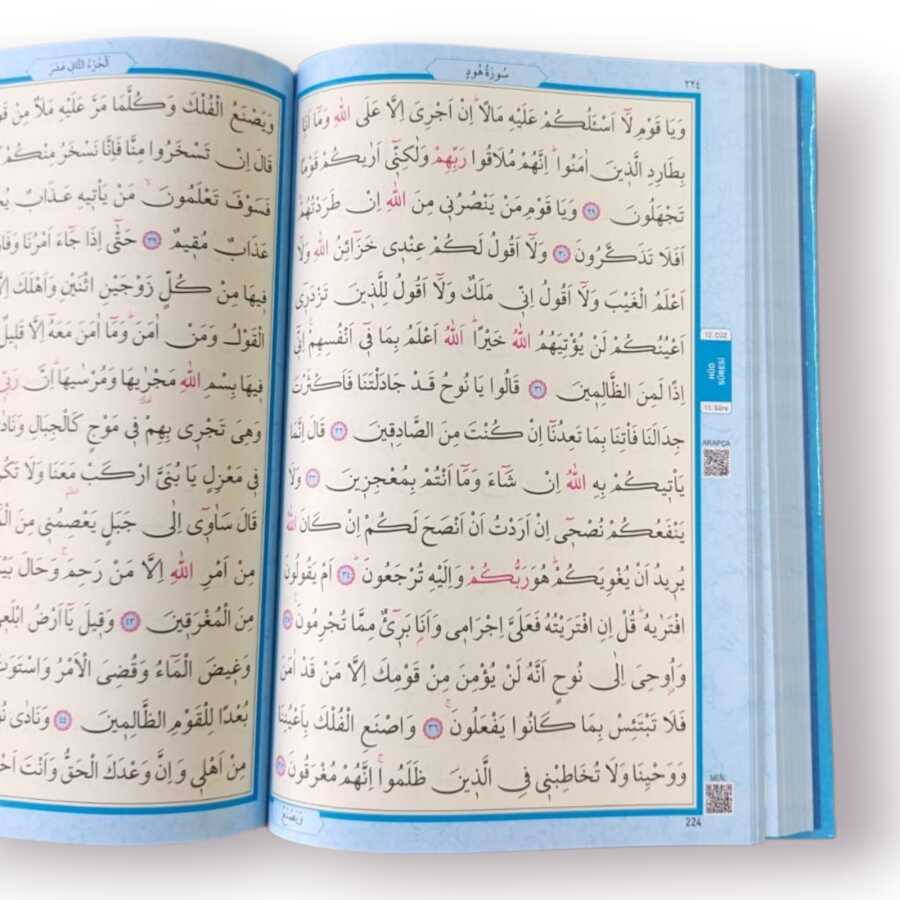 سُورَةُ هُودٍ
٢٢٤
وَيَا قَوْمِ لَٓا اَسْـَٔلُكُمْ عَلَيْهِ مَالًاۜ اِنْ اَجْرِىَ اِلَّا عَلَى اللّٰهِ وَمَٓا اَنَا۬
بِطَارِدِ الَّذ۪ينَ اٰمَنُواۜ اِنَّهُمْ مُلَاقُوا رَبِّهِمْ وَلٰكِنّ۪ٓى اَرٰيكُمْ قَوْمًا
تَجْهَلُونَ ﴿٢٩﴾ وَيَا قَوْمِ مَنْ يَنْصُرُن۪ى مِنَ اللّٰهِ اِنْ طَرَدْتُهُمْۜ
اَفَلَا تَذَكَّرُونَ ﴿٣٠﴾ وَلَٓا اَقُولُ لَكُمْ عِنْد۪ى خَزَٓائِنُ اللّٰهِ وَلَٓا
اَعْلَمُ الْغَيْبَ وَلَٓا اَقُولُ اِنّ۪ى مَلَكٌ وَلَٓا اَقُولُ لِلَّذ۪ينَ تَزْدَر۪ٓى
اَعْيُنُكُمْ لَنْ يُؤْتِيَهُمُ اللّٰهُ خَيْرًاۜ اَللّٰهُ اَعْلَمُ بِمَا ف۪ٓى اَنْفُسِهِمْۚ اِنّ۪ٓى
اِذًا لَمِنَ الظَّالِم۪ينَ ﴿٣١﴾ قَالُوا يَا نُوحُ قَدْ جَادَلْتَنَا فَاَكْثَرْتَ
جِدَالَنَا فَأْتِنَا بِمَا تَعِدُنَٓا اِنْ كُنْتَ مِنَ الصَّادِق۪ينَ ﴿٣٢﴾ قَالَ اِنَّمَا
يَأْت۪يكُمْ بِهِ اللّٰهُ اِنْ شَٓاءَ وَمَٓا اَنْتُمْ بِمُعْجِز۪ينَ ﴿٣٣﴾ وَلَا
يَنْفَعُكُمْ نُصْح۪ٓى اِنْ اَرَدْتُ اَنْ اَنْصَحَ لَكُمْ اِنْ كَانَ اللّٰهُ
يُر۪يدُ اَنْ يُغْوِيَكُمْۜ هُوَ رَبُّكُمْ وَاِلَيْهِ تُرْجَعُونَۜ ﴿٣٤﴾ اَمْ يَقُولُونَ
افْتَرٰيهُۜ قُلْ اِنِ افْتَرَيْتُهُ فَعَلَىَّ اِجْرَام۪ى وَاَنَا۬ بَر۪ٓىءٌ مِمَّا تُجْرِمُونَ۟ ﴿٣٥﴾
وَاُو۫حِىَ اِلٰى نُوحٍ اَنَّهُ لَنْ يُؤْمِنَ مِنْ قَوْمِكَ اِلَّا مَنْ قَدْ اٰمَنَ
فَلَا تَبْتَئِسْ بِمَا كَانُوا يَفْعَلُونَۚ ﴿٣٦﴾ وَاصْنَعِ الْفُلْكَ بِاَعْيُنِنَا
وَوَحْيِنَا وَلَا تُخَاطِبْن۪ى فِى الَّذ۪ينَ ظَلَمُواۚ اِنَّهُمْ مُغْرَقُونَ ﴿٣٧﴾
وَيَصْنَعُ
224
12. CÜZ
HÛD
SÛRESİ
11. Sûre
ARAPÇA
MEÂL
اَلْجُزْءُ الثَّانِى عَشَرَ
وَيَصْنَعُ الْفُلْكَ وَكُلَّمَا مَرَّ عَلَيْهِ مَلَاٌ مِنْ
قَالَ اِنْ تَسْخَرُوا مِنَّا فَاِنَّا نَسْخَرُ مِنْكُمْ
فَسَوْفَ تَعْلَمُونَۙ مَنْ يَأْت۪يهِ عَذَابٌ
عَذَابٌ مُق۪يمٌ ﴿٣٩﴾ حَتّٰٓى اِذَا جَٓاءَ اَمْرُنَا
ف۪يهَا مِنْ كُلٍّ زَوْجَيْنِ اثْنَيْنِ وَاَهْلَكَ
الْقَوْلُ وَمَنْ اٰمَنَۜ وَمَٓا اٰمَنَ مَعَهُٓ اِلَّا قَل۪يلٌ
ف۪يهَا بِسْمِ اللّٰهِ مَجْرٰۭۙيهَا وَمُرْسٰيهَاۜ اِنَّ رَبّ۪ى
وَهِىَ تَجْر۪ى بِهِمْ ف۪ى مَوْجٍ كَالْجِبَالِ
ف۪ى مَعْزِلٍ يَا بُنَىَّ ارْكَبْ مَعَنَا وَلَا
قَالَ سَاٰو۪ٓى اِلٰى جَبَلٍ يَعْصِمُن۪ى مِنَ
مِنْ اَمْرِ اللّٰهِ اِلَّا مَنْ رَحِمَۚ وَحَالَ
مِنَ الْمُغْرَق۪ينَ ﴿٤٣﴾ وَق۪يلَ يَٓا اَرْضُ
وَغ۪يضَ الْمَٓاءُ وَقُضِىَ الْاَمْرُ
بُعْدًا لِلْقَوْمِ الظَّالِم۪ينَ ﴿٤٤﴾ وَنَادٰى
مِنْ اَهْل۪ى وَاِنَّ وَعْدَكَ الْحَقُّ وَاَنْتَ